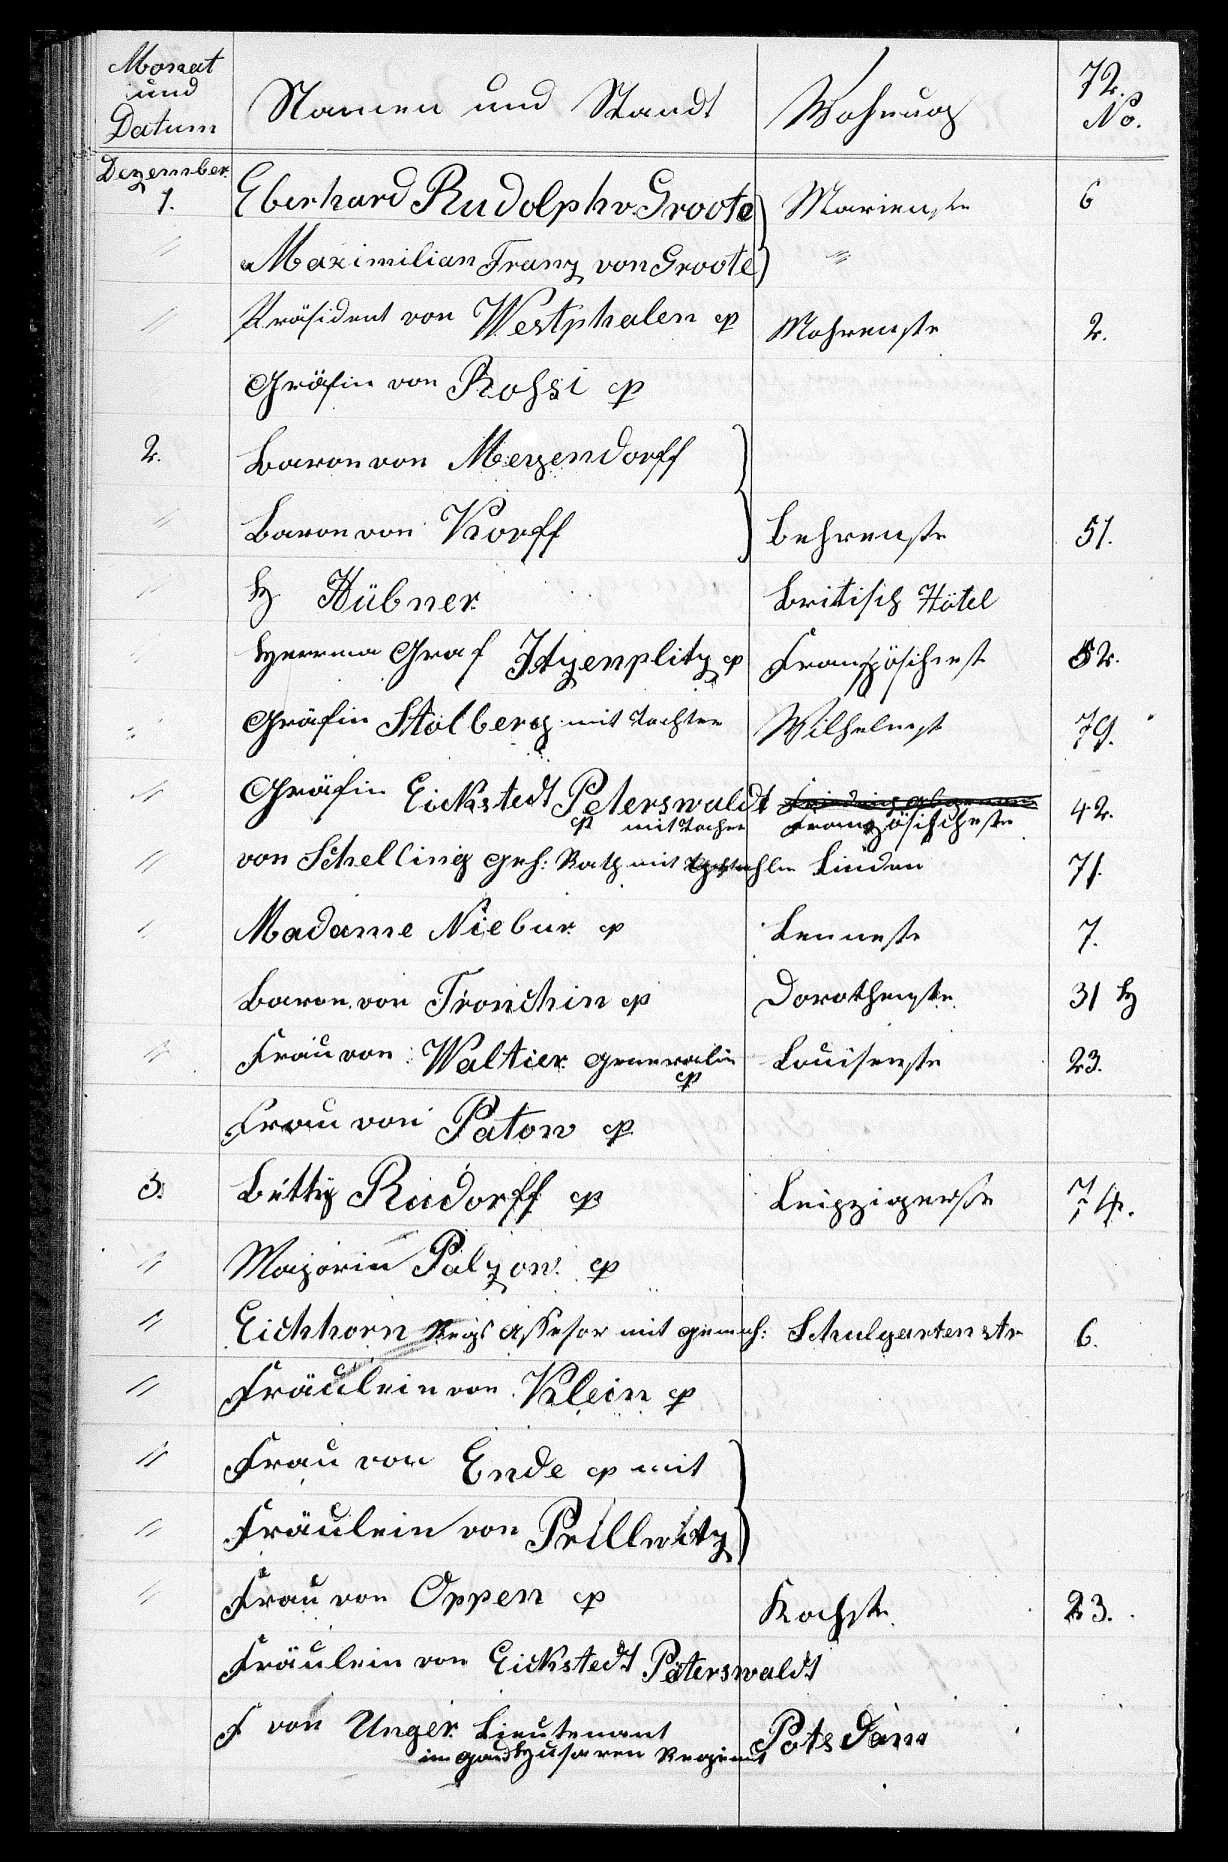 72.
Monat und Datum Namen und Standt Wohnung No.
Dezember
1. Eberhard Rudolph v. Groote ) Marienstr 6
" Maximilian Franz von Groote ) "
" Präsident von Westphalen cp Mohrenstr 2.
Gräfin von Roßsi cp
2. Baron von Meyendorff }
" Baron von Korff } Behrenstr 51.
" H Hübner. Britisch Hôtel
" Graf Itzenplitz cp Französischest 52.
" Gräfin Stolberg mit Tochter Wilhelmst 79.
" Gräfin Eickstedt Peterswaldt
cp mit Tochter Französischestr 42.
" von Schelling geh: Rath mit Linden 71.
" Madame Niebur cp Lennestr 7.
Baron von Tronchin cp Dorotheestr. 31
" Frau von Waltier. Generalin Louisenstr 23.
cp
Frau von Patow cp
3. Bettig Rudorff cp Leipzigerstr 74.
" Majorin Palzow. cp
" Eichhorn Regs Assesor mit gemah: Schulgartenstr 6.
" Fräulein von Klein cp
" Frau von Ende cp mit }
" Fräulein von Prillwitz }
" Frau von Oppen cp Kochstr. 23.
Fräulein von Eickstedt Peterswaldt
F von Unger. Lieutenant Potsdam
im gard Husaren Regiment